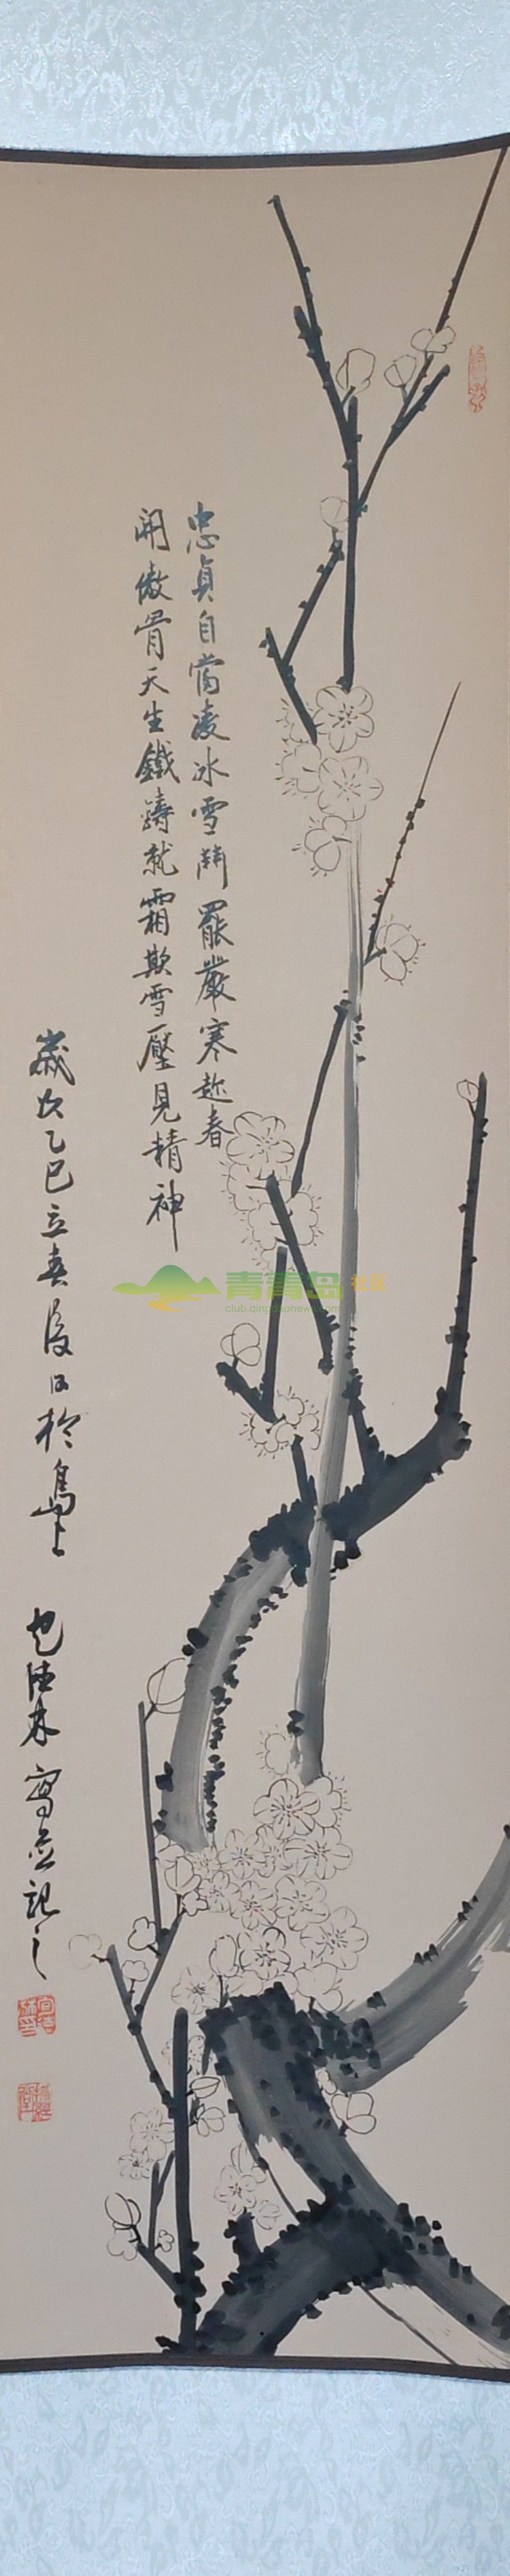 忠貞自當凌冰雪鬥罷嚴寒趂春
開傲骨天生鐵鑄就霜欺雪壓見精神
歲次乙巳立春後日於島上
林寫並記之
青青岛社区
club.qingdaonews.com